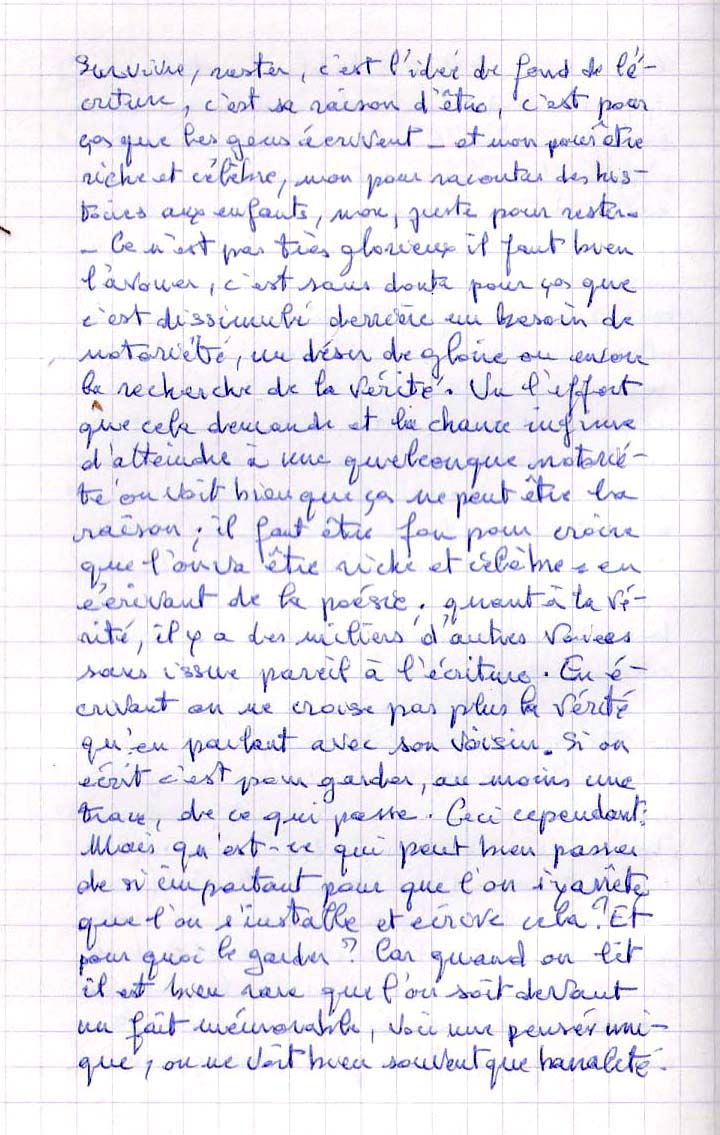 Survivre, rester, c'est l'idée de fond de l'é-
criture, c'est sa raison d'être, c'est pour
ça que les gens écrivent – et non pour être
riche et célèbre, non pour raconter des his-
toires aux enfants, non, juste pour rester.
– Ce n'est pas très glorieux il faut bien
l'avouer, c'est sans doute pour ça que
c'est dissimulé derrière un besoin de
notoriété, un désir de gloire ou encore
la recherche de la vérité. Vu l'effort
que cela demande et la chance infime
d'atteindre à une quelconque notorié-
té on voit bien que ça ne peut être la
raison ; il faut être fou pour croire
que l'on va être riche et célèbre en
écrivant de la poésie. quant à la vé-
rité, il y a des milliers d'autres voies
sans issue pareil à l'écriture. En é-
crivant on ne croise pas plus la vérité
qu'en parlant avec son voisin. Si on
écrit c'est pour garder, au moins une
trace, de ce qui passe. Ceci cependant :
Mais qu'est-ce qui peut bien passer
de si important pour que l'on s'y arrête
que l'on s'installe et écrive cela ? Et
pour quoi le garder ? Car quand on lit
il est bien rare que l'on soit devant
un fait mémorable, voir une pensér uni-
que, on ne voit bien souvent que banalité.